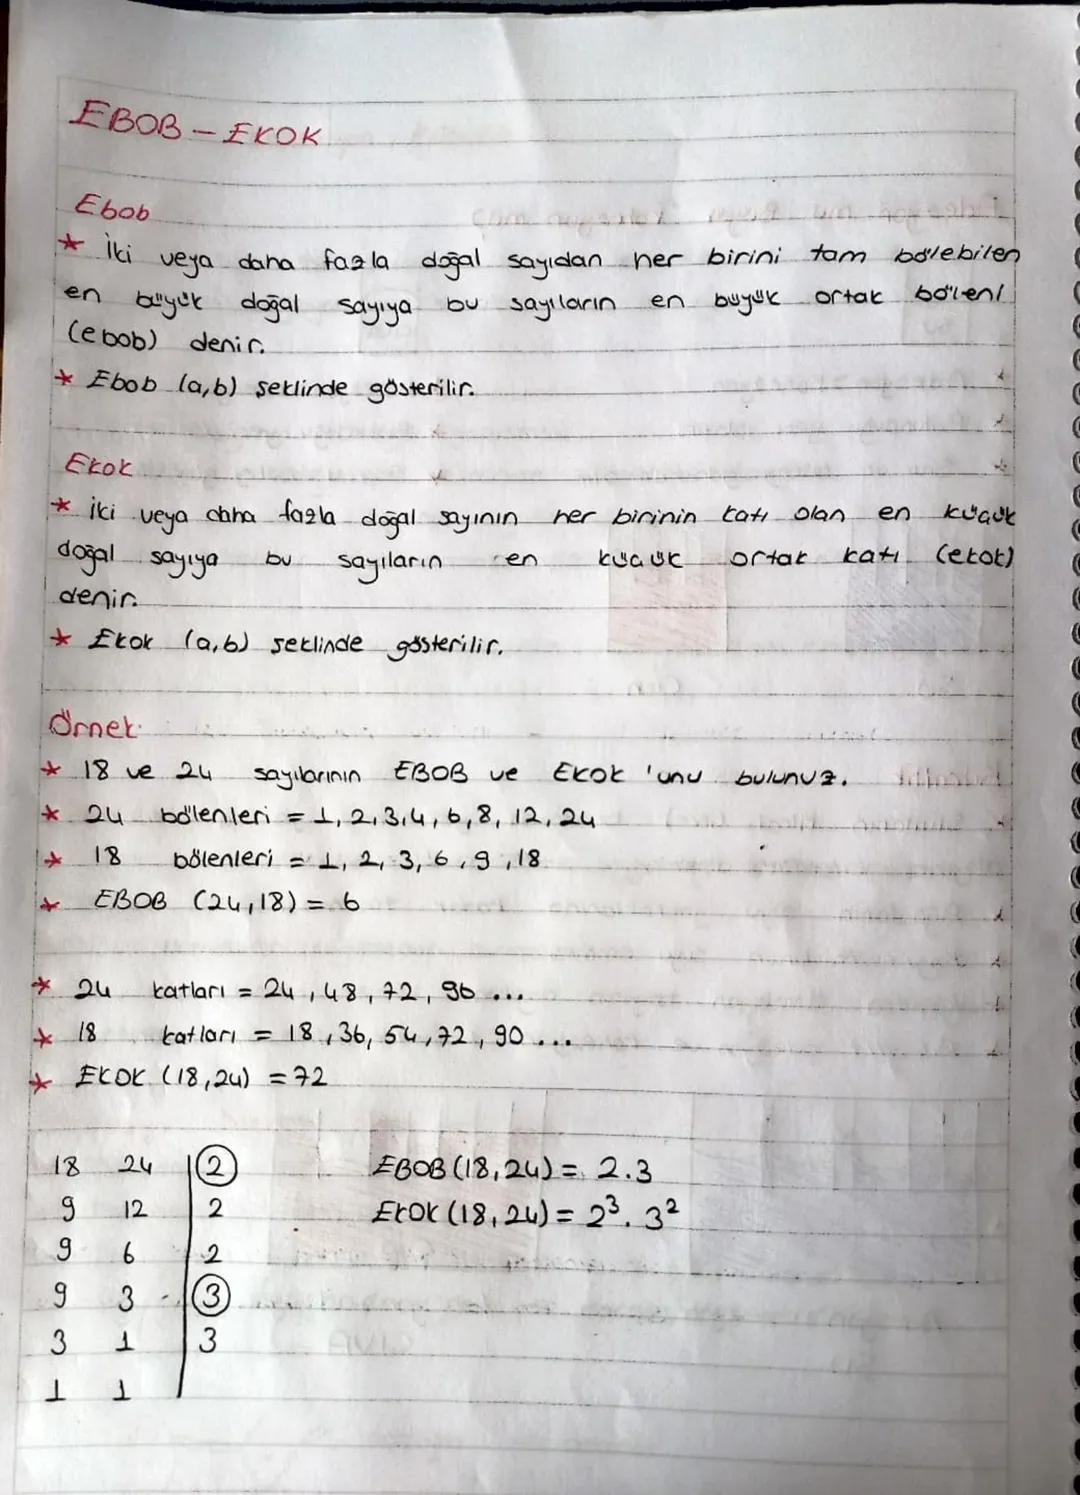 EBOB - EKOK
Ebob
* İki veya daha fazla doğal sayıdan her birini tam bölebilen
en büyük doğal sayıya bu sayıların en büyük ortak böleni
(ebob) denir.
* Ebob (a,b) şeklinde gösterilir.
Ekok
* İki veya daha fazla doğal sayının her birinin katı olan en küçük
doğal sayıya bu sayıların en küçük ortak katı (ekok)
denir.
* Ekok (a,b) şeklinde gösterilir.
Örnek
* 18 ve 24 sayılarının EBOB ve EKOK 'unu bulunuz.
* 24 bölenleri = 1, 2, 3, 4, 6, 8, 12, 24
* 18 bölenleri = 1, 2, 3, 6, 9, 18
* EBOB (24,18) = 6
* 24 katları = 24, 48, 72, 96 ...
* 18 katları = 18, 36, 54, 72, 90 ...
* EKOK (18,24) = 72
18 24 | 2 EBOB (18,24) = 2.3
9 12 | 2 EKOK (18,24) = 2³. 3²
9 6 | 2
9 3 | 3
3 1 | 3
1 1 |